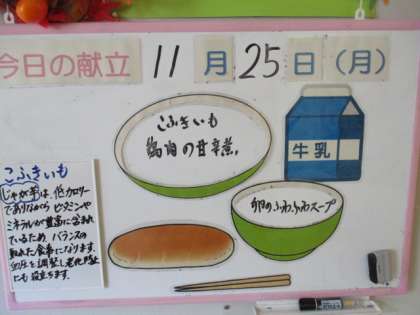 今日の献立 11月25日(月)
こふきいも
鶏肉の甘辛煮
牛乳
卵のふわふわスープ
こふきいも
じゃが芋は、低カロリー
でありながら ビタミンや
ミネラルが豊富に含まれ
ているため、バランスの
取れた食事になります。
血圧を調整し老化防止
にも役立ちます。